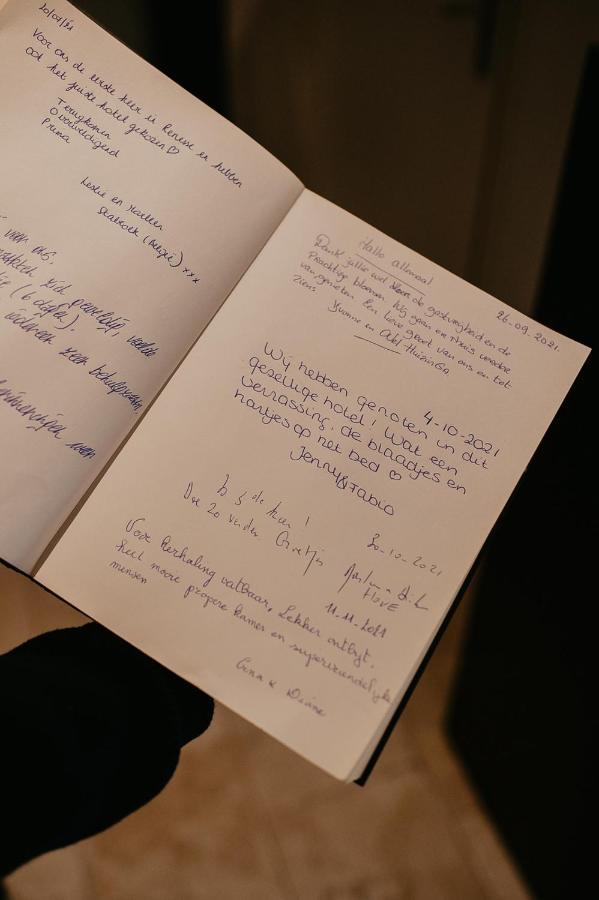 20/07/21
Voor ons de eerste keer in Renesse en hebben
ook het juiste hotel gekozen ♡
Terugkomen
Overweldigend
Prima
Leslie en
Stabroek (België) xxx
voor ons.
zich geweldig,
(6 dagen).
zeer behulpzaam,
26-09-2021.
Hallo allemaal
Dank jullie wel voor de gastvrijheid en de
Prachtige bloemen. Wij gaan er thuis verder
van genieten. Een lieve groet van ons en tot
Ziens
Yvonne en Abel Huizinga
4-10-2021
Wij hebben genoten in dit
gesellige hotel! Wat een
verrassing, de blaadjes en
hartjes op het bed ♡
Jenny & Fabio
20-10-2021
Zo 5de keer!
Doe zo verder Groetjes
HOVE
11-11-2021
Voor herhaling vatbaar, Lekker ontbijt,
heel mooie propere kamer en supervriendelijke
mensen
Gina & Diane